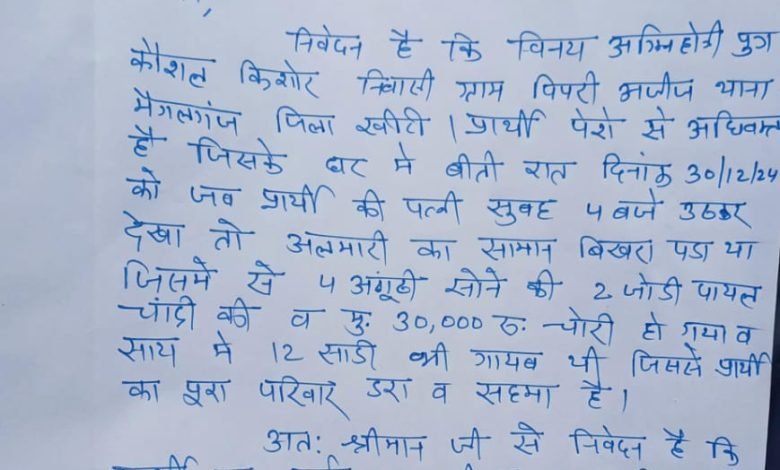 निवेदन है कि विनय अग्निहोत्री पुत्र
कौशल किशोर निवासी ग्राम पिपरी अजीज थाना
मैगलगंज जिला खीरी । प्रार्थी पेशे से अधिवक्ता
है जिसके घर मे बीती रात दिनांक 30/12/24
को जब प्रार्थी की पत्नी सुबह 4 बजे उठकर
देखा तो अलमारी का सामान बिखरा पडा था
जिसमे से 4 अंगूठी सोने की 2 जोडी पायल
चांदी की व मु. 30,000 रु. चोरी हो गया व
साथ मे 12 साडी भी गायब थी जिससे प्रार्थी
का पूरा परिवार डरा व सहमा है ।
अतः श्रीमान जी से निवेदन है कि